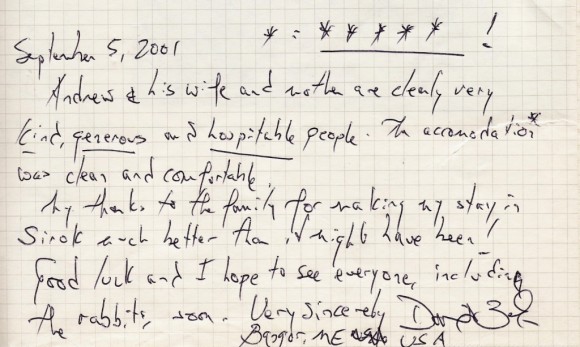 September 5, 2001 * = * * * * * !
Andrew & his wife and mother are clearly very
kind, generous and hospitable people. The accomodation*
was clean and comfortable.
My thanks to the family for making my stay in
Sirok much better than it might have been!
Good luck and I hope to see everyone, including
the rabbits, soon. Very sincerely
Bangor, ME USA